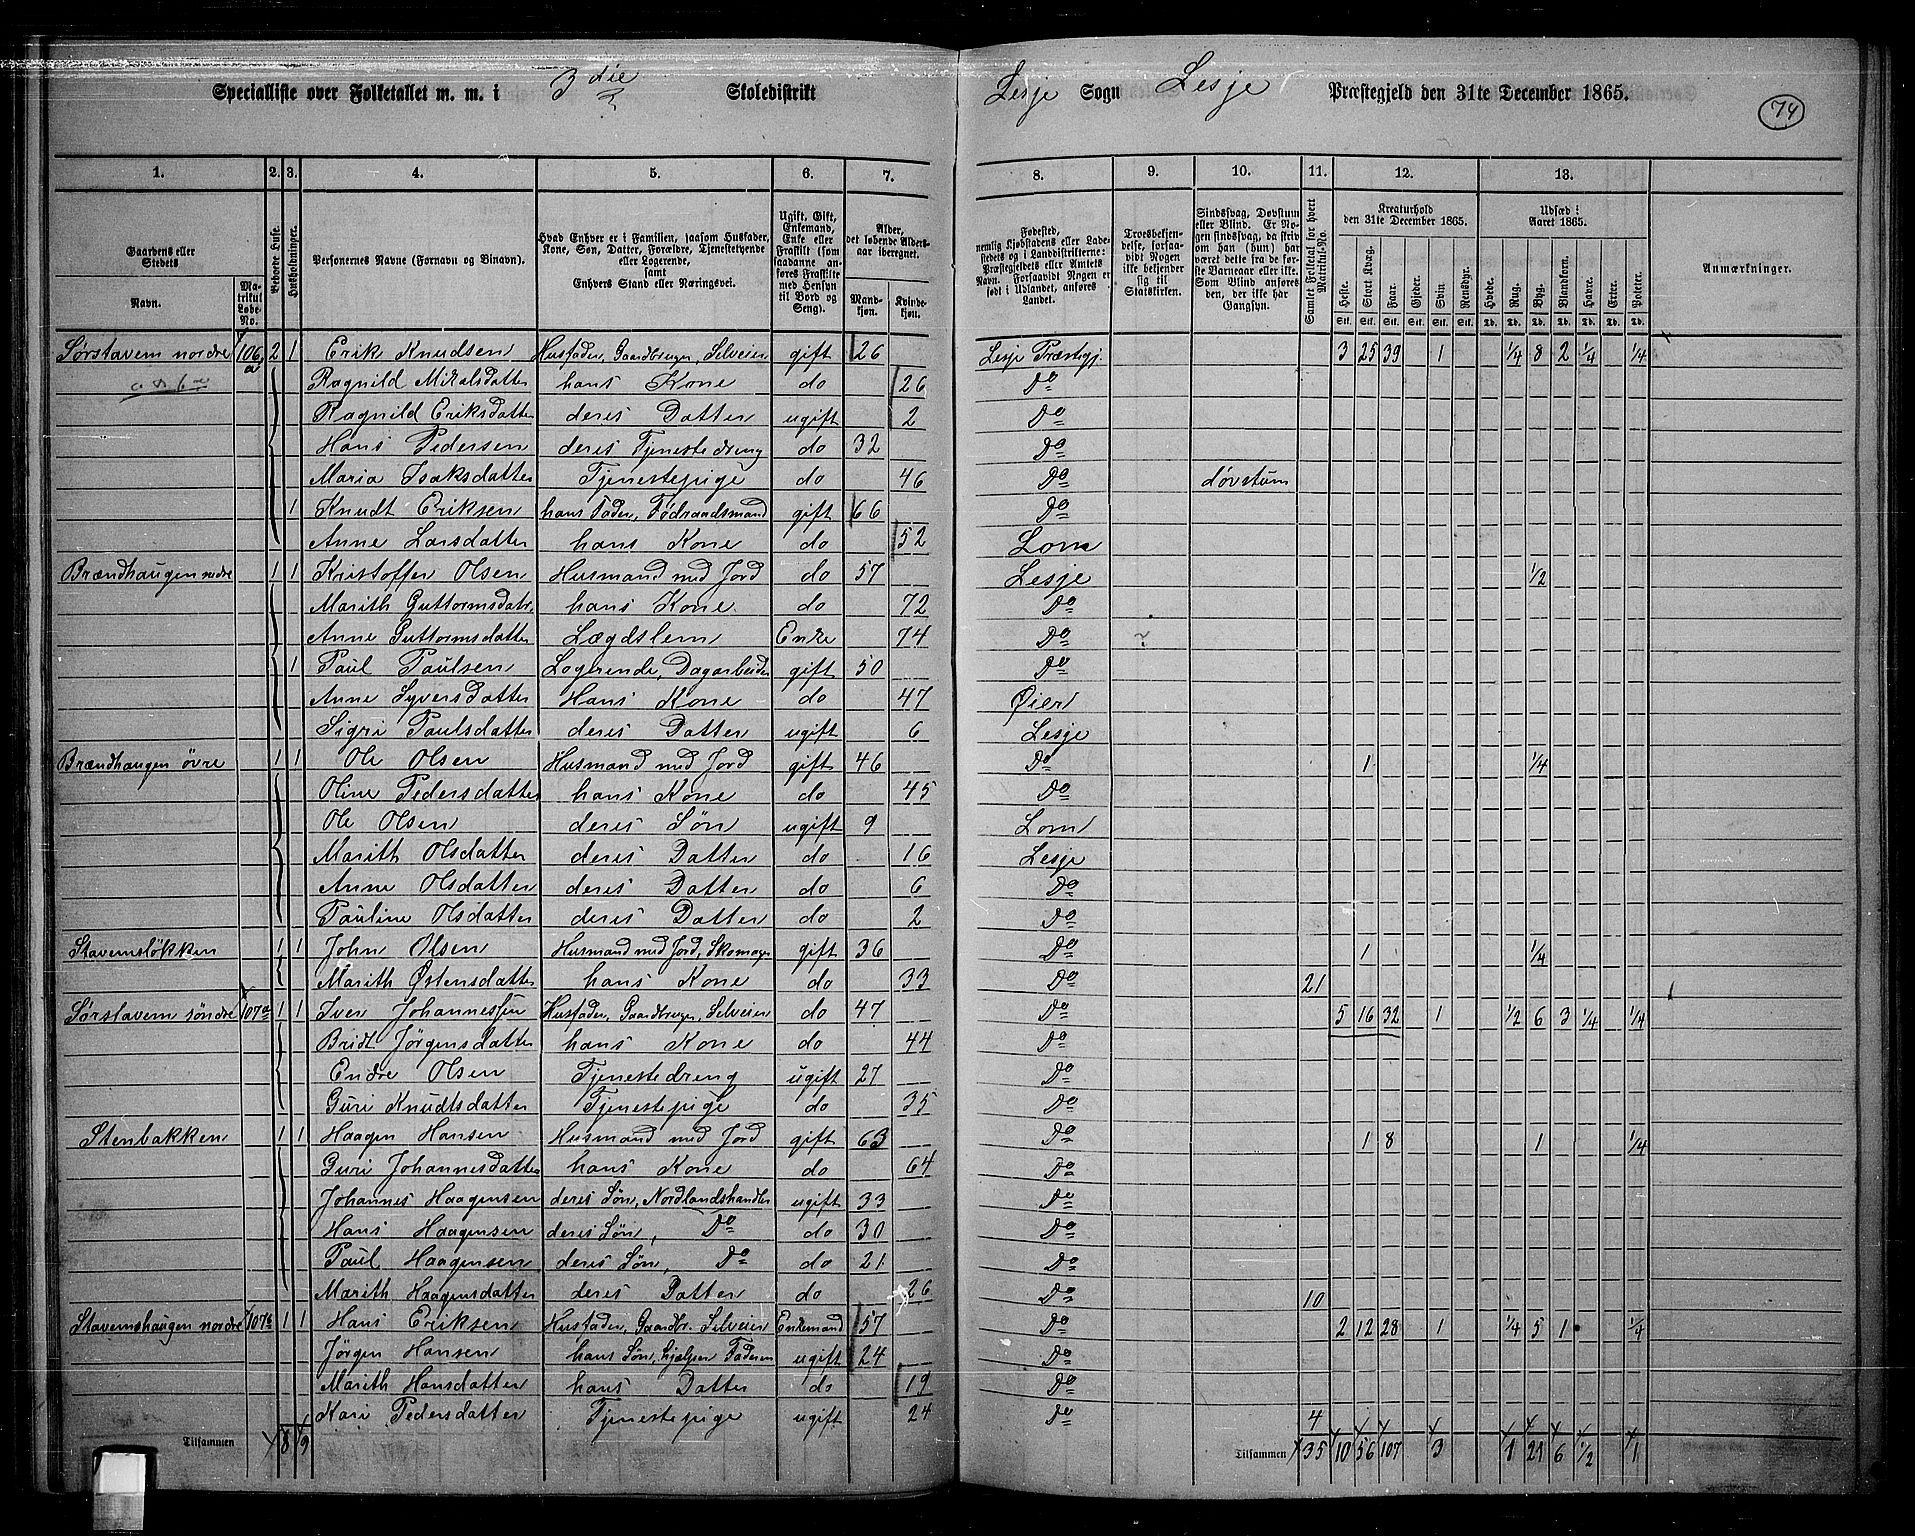 Specialliste over Folketallet m. m. i 3die Skoledistrikt Lesje Sogn Lesje Præstegjeld den 31te December 1865.
74
1. 2. 3. 4. 5. 6. 7. 8. 9. 10. 11. 12. 13.
Gaardens eller Stedets Navn. Matrikul Løbe-No. Beboede Huse. Husholdninger. Personernes Navne (Fornavn og Binavn). Hvad Enhver er i Familien, saasom Husfader, Kone, Søn, Datter, Forældre, Tjenestetyende eller Logerende, samt Enhvers Stand eller Næringsvei. Ugift, Gift, Enkemand, Enke eller Fraskilt (som saadanne anføres Fraskilte med Hensyn til Bord og Seng). Alder, det løbende Aldersaar iberegnet. Mandkjøn. Kvindekjøn.
Fødested, nemlig Kjøbstadens eller Ladestedets og i Landdistrikterne: Præstegjeldets eller Amtets Navn. Forsaavidt Nogen er født i Udlandet, anføres Landet. Troesbekjendelse, forsaavidt Nogen ikke bekjender sig til Statskirken. Sindssvag, Døvstum eller Blind. Er Nogen sindssvag, da skrives om han (hun) har været dette fra de første Barneaar eller ikke. Som Blind anføres den, der ikke har Gangsyn. Samlet Folketal for hvert Matrikul-No. Kreaturhold den 31te December 1865. Heste. Stort Kvæg. Faar. Gjeder. Svin. Rensdyr. Udsæd i Aaret 1865. Hvede. Rug. Byg. Blandkorn. Havre. Erter. Poteter. Anmærkninger.
Sørstavem nordre 106a 2 1 Erik Knudsen Husfader, Gaardbruger, Selveier gift 26 Lesje Præstegj. 3 25 39 1 1/4 8 2 1/4 1/4
Ragnild Mikalsdatter hans Kone do 26 Do
Ragnild Eriksdatter deres Datter ugift 2 Do
Hans Pedersen deres Tjenestedreng do 32 Do
Maria Isaksdatter Tjenestepige do 46 Do døvstum
1 Knudt Eriksen hans Fader, Födraadsmand gift 66 Do
Anne Larsdatter hans Kone do 52 Lom
Brændhaugen nedre 1 1 Kristoffer Olsen Husmand med Jord do 57 Lesje 1/2
Marith Guttormsdatr. hans Kone do 72 Do
Anne Guttormsdatter Lægdslem Enke 74 Do
1 Paul Paulsen Logerende, Dagarbeider gift 50 Do
Anne Syversdatter Hans Kone do 47 Øier
Sigri Paulsdatter deres Datter ugift 6 Lesje
Brændhaugen øvre 1 1 Ole Olsen Husmand med Jord gift 46 Do 1 1/4
Oline Pedersdatter hans Kone do 45 Do
Ole Olsen deres Søn ugift 9 Lom
Marith Olsdatter deres Datter do 16 Lesje
Anne Olsdatter deres Datter do 6 Do
Pauline Olsdatter deres Datter do 2 Do
Stavemsløkken 1 1 John Olsen Husmand med Jord, Skomager gift 36 Do 1 1/4
Marith Østensdatter hans Kone do 33 Do 21
Sørstavem søndre 107a 1 1 Iver Johannessen Husfader, Gaardbruger, Selveier do 47 Do 5 16 32 1 1/2 6 3 1/4 1/4
Bridt Jörgensdatter hans Kone do 44 Do
Endre Olsen Tjenestedreng ugift 27 Do
Guri Knudtsdatter Tjenestepige do 35 Do
Stenbakken 1 1 Haagen Hansen Husmand med Jord gift 63 Do 1 8 1 1/4
Guri Johannesdatter hans Kone do 64 Do
Johannes Haagensen deres Søn, Nordlandshandler ugift 33 Do
Hans Haagensen deres Søn, Do do 30 Do
Paul Haagensen deres Søn, Do do 21 Do
Marith Haagensdatter deres Datter do 26 Do 10
Stavemshaugen nordre 107b 1 1 Hans Eriksen Husfader, Gaardbr. Selveier Enkemand 57 Do 2 12 28 1 1/4 5 1 1/4
Jørgen Hansen hans Søn, hjælper Faderen ugift 24 Do
Marith Hansdatter hans Datter do 19 Do
Kari Pedersdatter Tjenestepige ugift 24 Do 4
Tilsammen 8 9 Tilsammen 35 10 56 107 3 1 21 6 1/2 1